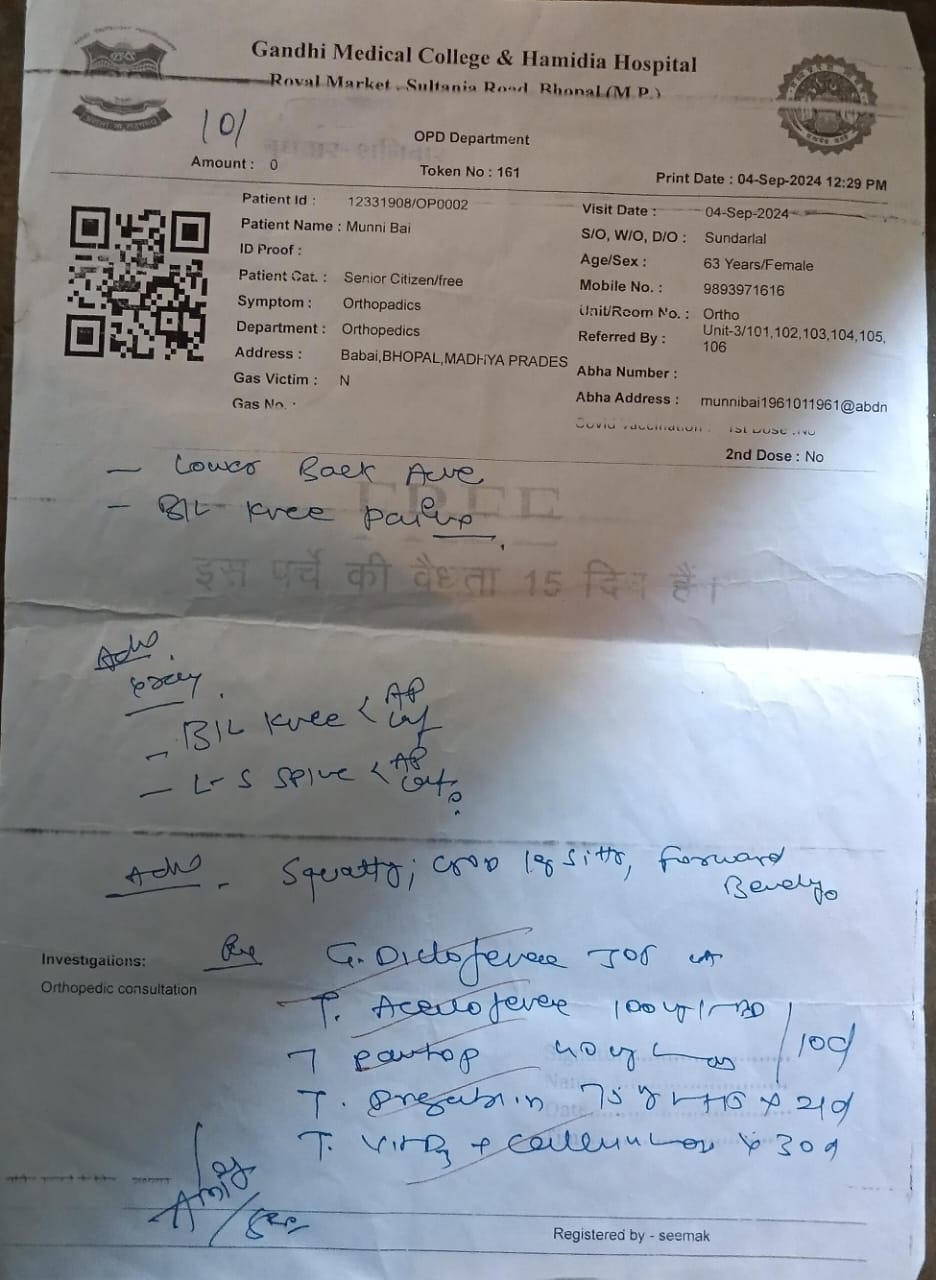 Gandhi Medical College & Hamidia Hospital
Royal Market, Sultania Road, Bhopal (M.P.)
101
OPD Department
Amount : 0
Token No : 161
Print Date : 04-Sep-2024 12:29 PM
Patient Id : 12331908/OP0002
Visit Date : 04-Sep-2024
Patient Name : Munni Bai
S/O, W/O, D/O : Sundarlal
ID Proof :
Age/Sex : 63 Years/Female
Patient Cat. : Senior Citizen/free
Mobile No. : 9893971616
Symptom : Orthopadics
Unit/Room No. : Ortho
Department : Orthopedics
Referred By : Unit-3/101,102,103,104,105,
106
Address : Babai,BHOPAL,MADHYA PRADES
Abha Number :
Gas Victim : N
Abha Address : munnibai1961011961@abdn
Gas No. :
Covid Vaccination : 1st Dose :No
2nd Dose : No
- Lower Back
- B/L Knee pain
FREE
इस पर्चे की वैधता 15 दिन है।
Adv
xray
- B/L Knee < AP
- L-S Spine < AP
Adv. Squatting, cross leg sitting, Forward
Bending
Investigations:
Orthopedic consultation
Rx
T. 100 BD
T. Pantop 40 10d
T. 75 HS x 21d
T. Vit D3 + x 30d
Registered by - seemak